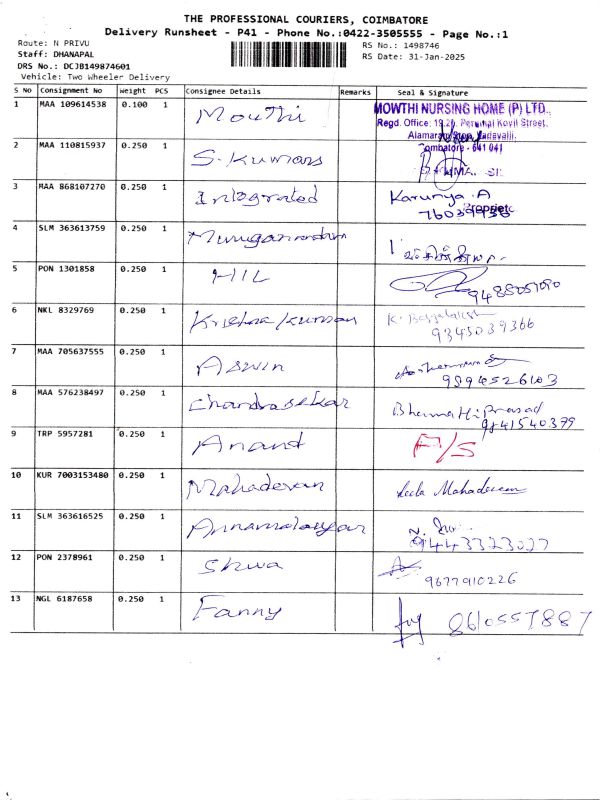 THE PROFESSIONAL COURIERS, COIMBATORE
Delivery Runsheet - P41 - Phone No.:0422-3505555 - Page No.:1
Route: N PRIVU
RS No.: 1498746
Staff: DHANAPAL
RS Date: 31-Jan-2025
DRS No.: DCJB149874601
Vehicle: Two Wheeler Delivery
S No Consignment No Weight PCS Consignee Details Remarks Seal & Signature
1 MAA 109614538 0.100 1 Mowthi MOWTHI NURSING HOME (P) LTD.,
Regd. Office: 19,20, Perumal Kovil Street,
Vadavalli.
641 041
2 MAA 110815937 0.250 1 S. Kumars
3 MAA 868107270 0.250 1 Integrated Karunya. A
4 SLM 363613759 0.250 1
5 PON 1301858 0.250 1 HIL
6 NKL 8329769 0.250 1 Krishna Kumar
9345039366
7 MAA 705637555 0.250 1 Aswin
9894526103
8 MAA 576238497 0.250 1 Chandrasekar Bharathi prasad
9841540379
9 TRP 5957281 0.250 1 Anand
10 KUR 7003153480 0.250 1 Mahadevan Leela Mahadevan
11 SLM 363616525 0.250 1
9443323027
12 PON 2378961 0.250 1 Shwa
9677910226
13 NGL 6187658 0.250 1 Fanny 8610557887